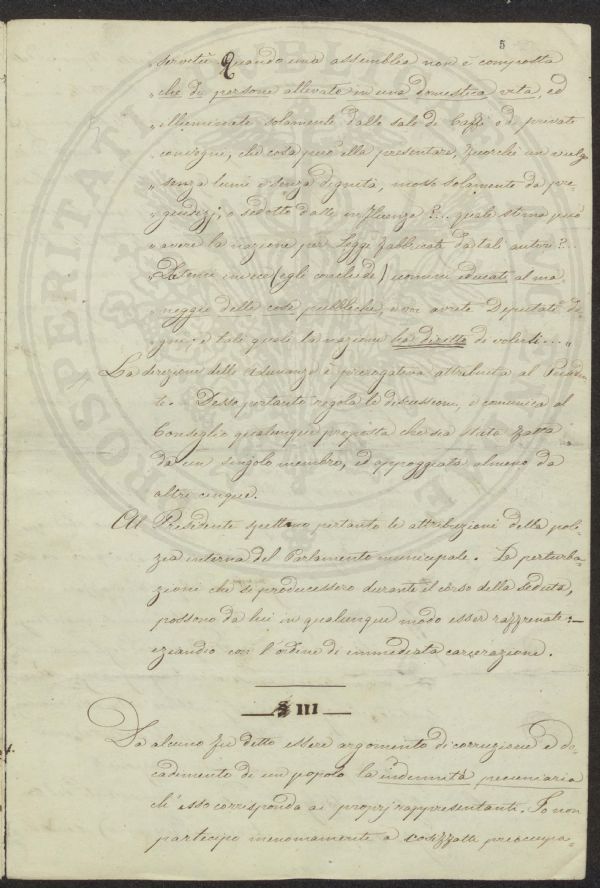 5
„ servitù. Quando una assemblea non è composta
„ che di persone allevate in una domestica vita, ed
„ illuminate solamente dalle sale di Caffè o di privati
„ convegni, che cosa può ella presentare, fuorché un vulgo
„ senza lumi e senza dignità, mosso solamente da pre-
„ giudizj, o sedotto dalle influenze?... quale stima può
„ avere la nazione per leggi fabbricate da tali autori?...
„ invece (egli conclude) uomini educati al ma-
„ neggio delle cose pubbliche, e voi avrete Deputati de-
„ gni, e tali quali la nazione ha diritto di volerli....„
La direzione delle Adunanze è prerogativa attribuita al Preside-
te. Desso pertanto regola le discussioni, e comunica al
Consiglio qualunque proposta che sia stata fatta
da un singolo membro, ed appoggiata almeno da
altri cinque.
Al Presidente spettano pertanto le attribuzioni della poli-
zia interna del Parlamento municipale. Le perturba-
zioni che si producessero durante il corso della seduta,
possono da lui in qualunque modo esser raffrenate:—
eziandio con l'ordine di immediata carcerazione.
§ III
Da alcuno fu detto essere argomento di corruzione e de-
cadimento di un popolo la indennità pecuniaria
ch'esso corrisponda ai proprj rappresentanti. Io non
partecipo menomamente a cosiffatta preoccupa-
PROSPERITATI